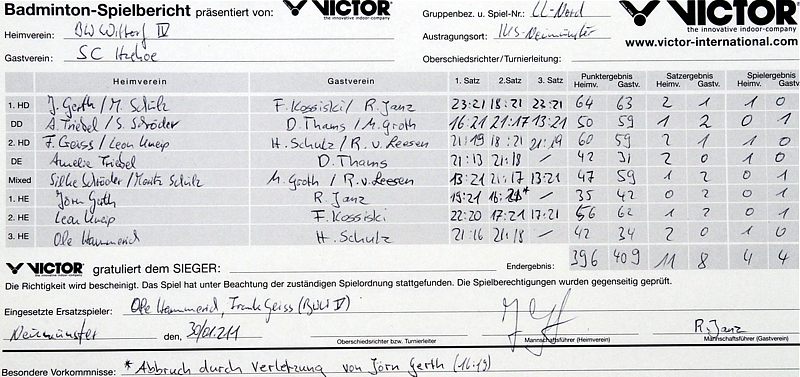 Badminton-Spielbericht präsentiert von: VICTOR the innovative indoor-company Gruppenbez. u. Spiel-Nr.: LL-Nord VICTOR the innovative indoor-company
Heimverein: BW Wittorf IV Austragungsort: www.victor-international.com
Gastverein: SC Itzehoe Oberschiedsrichter / Turnierleitung:
Heimverein Gastverein 1. Satz 2. Satz 3. Satz Punktergebnis Heimv. Gastv. Satzergebnis Heimv. Gastv. Spielergebnis Heimv. Gastv.
1. HD J. Gerth / M. Schulz F. Kossiski / R. Janz 23:21 18:21 23:21 64 63 2 1 1 0
DD A. Triebel / S. Schröder D. Thams / M. Groth 16:21 21:17 13:21 50 59 1 2 0 1
2. HD F. Geiss / Leon Kneip H. Schulz / R. v. Leesen 21:19 18:21 21:19 60 59 2 1 1 0
DE Amelie Triebel D. Thams 21:13 21:18 / 42 31 2 0 1 0
Mixed Silke Schröder / Moritz Schulz M. Groth / R. v. Leesen 13:21 21:17 13:21 47 59 1 2 0 1
1. HE Jörn Gerth R. Janz 19:21 16:21* 35 42 0 2 0 1
2. HE Leon Kneip F. Kossiski 22:20 17:21 17:21 56 62 1 2 0 1
3. HE Ole Hammerid H. Schulz 21:16 21:18 / 42 34 2 0 1 0
VICTOR the innovative indoor-company gratuliert dem SIEGER: Endergebnis: 396 409 11 8 4 4
Die Richtigkeit wird bescheinigt. Das Spiel hat unter Beachtung der zuständigen Spielordnung stattgefunden. Die Spielberechtigungen wurden gegenseitig geprüft.
Eingesetzte Ersatzspieler: Ole Hammerid, Frank Geiss (BWW V)
Neumünster den, 30/01.211 R. Janz
Oberschiedsrichter bzw. Turnierleiter Mannschaftsführer (Heimverein) Mannschaftsführer (Gastverein)
Besondere Vorkommnisse: * Abbruch durch Verletzung von Jörn Gerth (16:19)